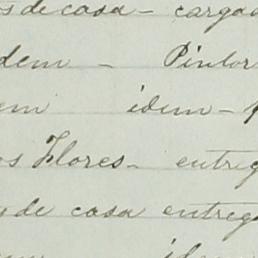 de casa - cargad
dem - Pintor
em idem -
os Flores - entreg
de casa entreg